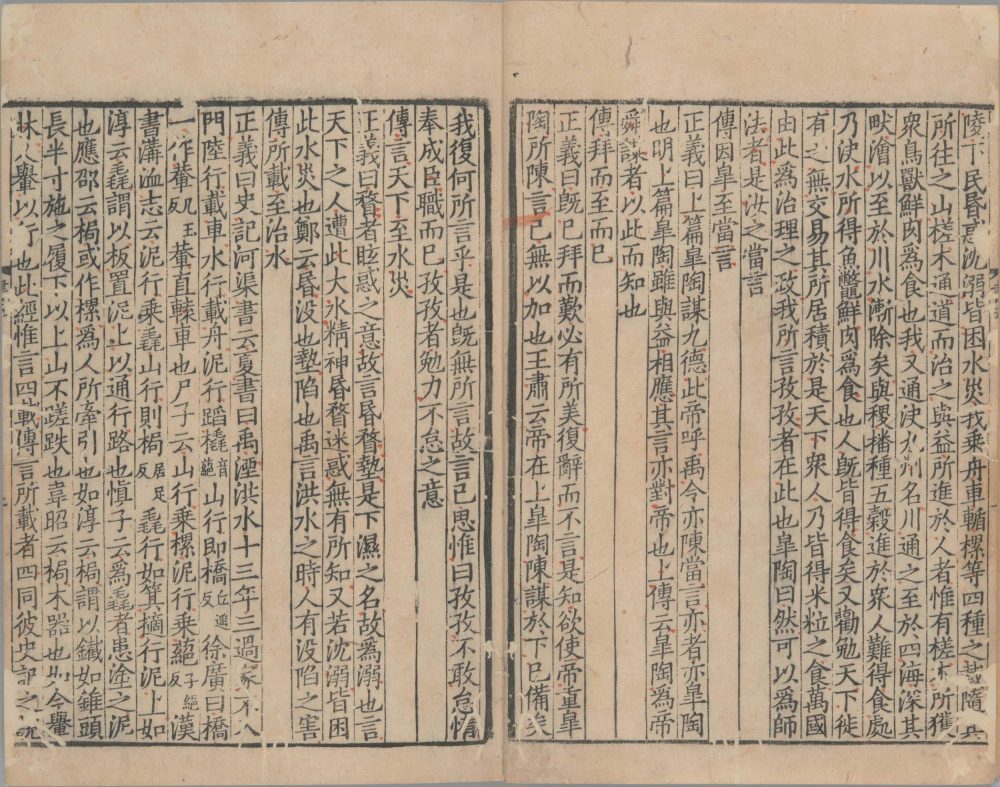 陵下民昏惑沈溺皆困水災我乗舟車輴樏等四種之載隨其
所往之山槎木通道而治之與益所進於人者惟有槎木所獲
衆鳥獸鮮肉爲食也我又通決九州名川通之至於四海深其
畎澮以至於川水漸除矣與稷播種五穀進於衆人難得食處
乃決水所得魚鼈鮮肉爲食也人旣皆得食矣又勸勉天下徙
有之無交易其所居積於是天下衆人乃皆得米粒之食萬國
由此爲治理之政我所言孜孜者在此也臯陶曰然可以爲師
法者是汝之當言
傳因臯至當言
正義曰上篇臯陶謀九德此帝呼禹今亦陳當言亦者亦臯陶
也明上篇臯陶雖與益相應其言亦對帝也上傳云臯陶爲帝
舜謀者以此而知也
傳拜而至而已
正義曰旣已拜而歎必有所美復辭而不言是知欲使帝重臯
陶所陳言已無以加也王肅云帝在上臯陶陳謀於下已備矣
我復何所言乎是也旣無所言故言己思惟曰孜孜不敢怠惰
奉成臣職而已孜孜者勉力不怠之意
傳言天下至水災
正義曰瞀者眩惑之意故言昏瞀墊是下濕之名故爲溺也言
天下之人遭此大水精神昏瞀迷惑無有所知又若沈溺皆困
此水災也鄭云昏没也墊陷也禹言洪水之時人有没陷之害
傳所載至治水
正義曰史記河渠書云夏書曰禹湮洪水十三年三過家不入
門陸行載車水行載舟泥行蹈橇音蕝山行即橋丘遥反徐廣曰橋
一作輂几玉反輂直轅車也尸子云山行乗樏泥行乗蕝子絕反漢
書溝洫志云泥行乗毳山行則梮居足反毳行如箕擿行泥上如
淳云毳謂以板置泥上以通行路也愼子云爲毳者患塗之泥
也應邵云梮或作樏爲人所牽引也如淳云梮謂以鐵如錐頭
長半寸施之履下以上山不蹉跌也韋昭云梮木器也如今轝
牀人轝以行也此經惟言四載傳言所載者四同彼史記之說